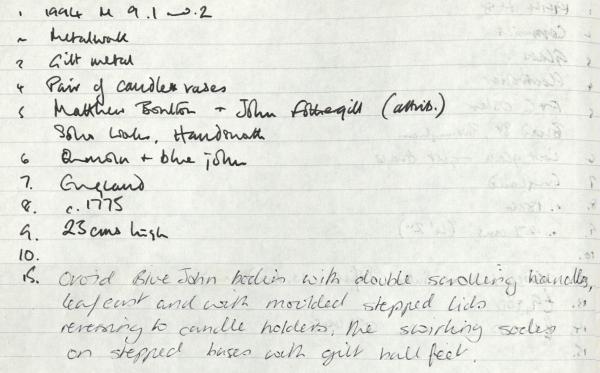 1 1994 M 9.1 → .2
2 Metalwork
3 Gilt metal
4 Pair of candle vases
5 Matthew Boulton + John Fothergill (attrib.)
Soho Works, Handsworth
6 Ormolu + blue john
7. England
8. c. 1775
9. 23 cms high
10.
15. Ovoid Blue John bodies with double scrolling handles,
leaf cast and with moulded stepped lids
reversing to candle holders. The swirling socles
on stepped bases with gilt ball feet.